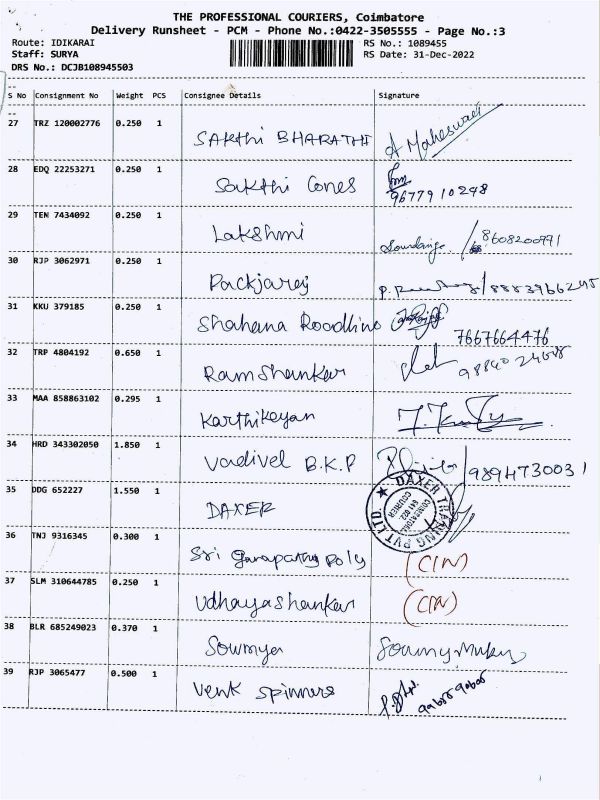 THE PROFESSIONAL COURIERS, Coimbatore
Delivery Runsheet - PCM - Phone No.:0422-3505555 - Page No.:3
Route: IDIKARAI RS No.: 1089455
Staff: SURYA RS Date: 31-Dec-2022
DRS No.: DCJB108945503
S No Consignment No Weight PCS Consignee Details Signature
27 TRZ 120002776 0.250 1 SAKthi BHARATHI A Maheswari
28 EDQ 22253271 0.250 1 Sakthi Cones
9677910248
29 TEN 7434092 0.250 1 Lakshmi 8608200991
30 RJP 3062971 0.250 1
31 KKU 379185 0.250 1 Shahana
7667664476
32 TRP 4804192 0.650 1 Ramshankar
33 MAA 858863102 0.295 1 Karthikeyan
34 HRD 343302050 1.850 1 Vadivel B.K.P 9894730031
35 DDG 652227 1.550 1 DAXER DAXER PVT LTD.
36 TNJ 9316345 0.300 1 Sri Ganapathy Poly (CIN)
37 SLM 310644785 0.250 1 Udhayashankar (CIN)
38 BLR 685249023 0.370 1 Sowmya
39 RJP 3065477 0.500 1 Venk Spinners